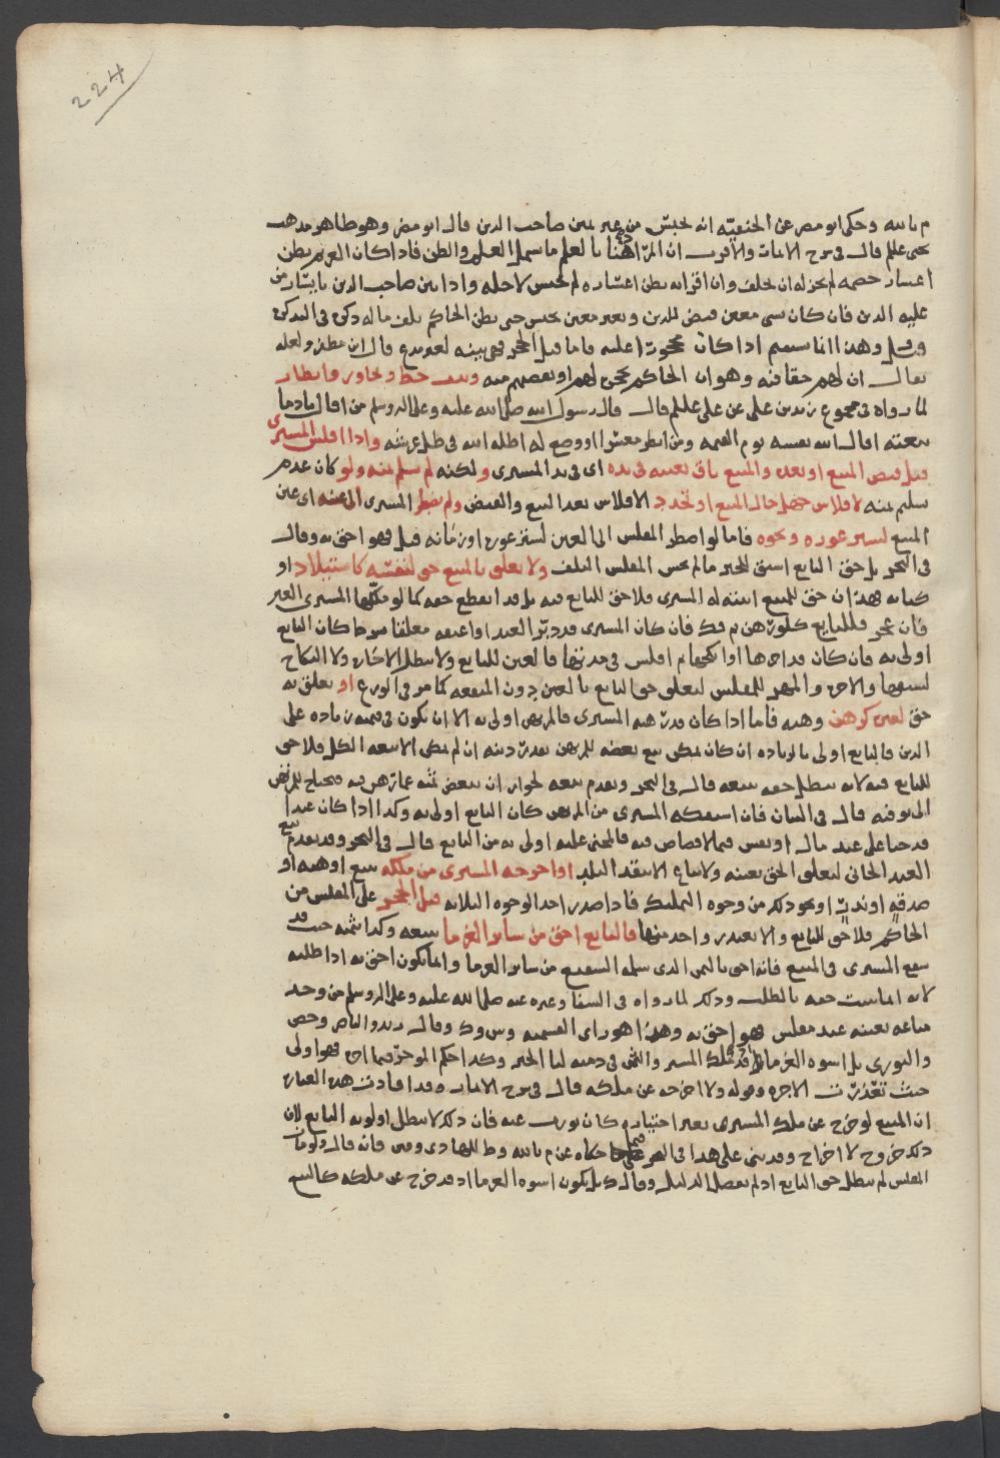 224
م بالله وحكى ابو مضر عن الحنفيّة انه يحبس من غير يمين صاحب الدين قال ابو مضر وهو ظاهر مذهب
يحيى علم قال في شرح الابانة والاقرب ان المراد هنا بالعلم ما يشمل العلم والظن فاذا كان الغريم يظن
اعسار خصمه لم يجز له ان يحلف وان اقر انه يظن اعساره لم يحبس لاجله واذا بين صاحب الدين بايسار من
عليه الدين فان كان بشي معين قبض للدين وبغير معين يحبس حتى يظن الحاكم تلف ماله ذكره في التذكرة
وقيل وهذا انما يستقيم اذا كان محجورا عليه فاما قبل الحجر فهي بينة لغير مدع قال ابن مظفر ولعله
يقال ان لهم حقا فيه وهو ان الحاكم يحجر لهم او يقضيهم منه وندب حط وتجاوز وانظار
لما رواه في مجموع زيد بن علي عن علي علم قال قال رسول الله صلى الله عليه وعلى اله وسلم من اقال نادما
بيعته اقال الله نفسه يوم القيمة ومن انظر معسرا او وضع له اظله الله في ظل عرشه واذا افلس المشتري
قبل قبض المبيع او بعده والمبيع باق بعينه في يده اي في يد المشتري ولكنه لم يسلم ثمنه ولو كان عدم
تسليم ثمنه لافلاس جهل حال البيع او تجدد الافلاس بعد البيع والقبض ولم يضطر المشتري الى عينه اى عين
المبيع لستر عورة ونحوه فاما لو اضطر المفلس الى العين لستر عورة او زمانه قيل فهو احق به وقال
في البحر بل حق البايع اسبق للخبر مالم يخش المفلس التلف ولا تعلق بالمبيع حق لنفسه كاستيلاد او
كتابه فهذا ان حق للمبيع اثبته له المشتري فلا حق للبايع فيه بل قد انقطع حقه كما لو ملكها المشتري الغير
فان عجز فللبايع كلو رهن ثم فك فان كان المشتري قد دبر العبد او اعتقه معلقا بشرط كان البايع
اولى به فان كان قد اجرها او انكحها ثم افلس في مدتها فالعين للبايع ولا تبطل الاجارة ولا النكاح
لسبقها والاجرة والمهر للمفلس لتعلق حق البايع بالعين دون المنفعه كما مر في الورع او تعلق به
حق لغيره كرهن وهبه فاما اذا كان قد رهنه المشتري فالمرتهن اولى به الا ان يكون في قيمته زياده على
الدين فالبايع اولى بالزياده ان كان يمكن بيع بعضه للمرتهن بقدر دينه ان لم يمكن الا بيعه الكل فلا حق
للبايع فيه لانه يبطل حقه ببيعه قال في البحر ويقدم بيعه لجواز ان ينقص ثمنه عما رهن به فيحتاج المرتهن
الى توفيه قال في البيان فان استفكه المشتري من المرتهن كان البايع اولى به وكذا اذا كان عبدا
قد جنا على عبد مال او نفس فيما لا قصاص فيه فالمجنى عليه اولى به من البايع قال في البحر وقد يقدم بيع
العبد الجاني لتعلق الحق بعينه ولا يباع الا بنقد البلد او اخرجه المشتري من ملكه ببيع او هبه او
صدقه او نذر او نحو ذلك من وجوه التمليك فاذا صدر احد الوجوه الثلاثه قبل الحجر على المفلس من
الحاكم فلا حق للبايع والا يصدر واحد منها فالبايع احق من سائر الغرما ببيعه وكذا ثمنه حيث قد
بيع المشتري في المبيع فانه احق بالثمن الذي سلمه الشفيع من سائر الغرما وانما يكون احق به اذا طلبه
لانه انما يثبت حقه بالطلب وذلك لما رواه في الشفا وغيره عنه صلى الله عليه وعلى اله وسلم من وجد
متاعه بعينه عند مفلس فهو احق به وهذا هو راى القسميه وش وك وقال زيد والناصر وحص
والثوري بل اسوة الغرما بل قد ملك المشتر والثمن في ذمته لنا الخبر وكذا حكم الموجر فيما اجره فهو اولى
حيث تعذرت الاجره وقوله ولا اخرجه عن ملكه قال في شرح الاثمار وقد افادت هذه العبارة
ان المبيع لو خرج عن ملك المشتري بغير اختياره كان يورث عنه فان ذلك لا يبطل اولويه البايع لان
ذلك خروج لا اخراج وقد بنى على هذا في البحر فيما حكاه عن م بالله وط للهادي وفى فانه قال ولو مات
المفلس لم يبطل حق البايع اذ لم يفصل الدليل وقال ك بل يكون اسوة الغرما اذ قد خرج عن ملكه كالبيع